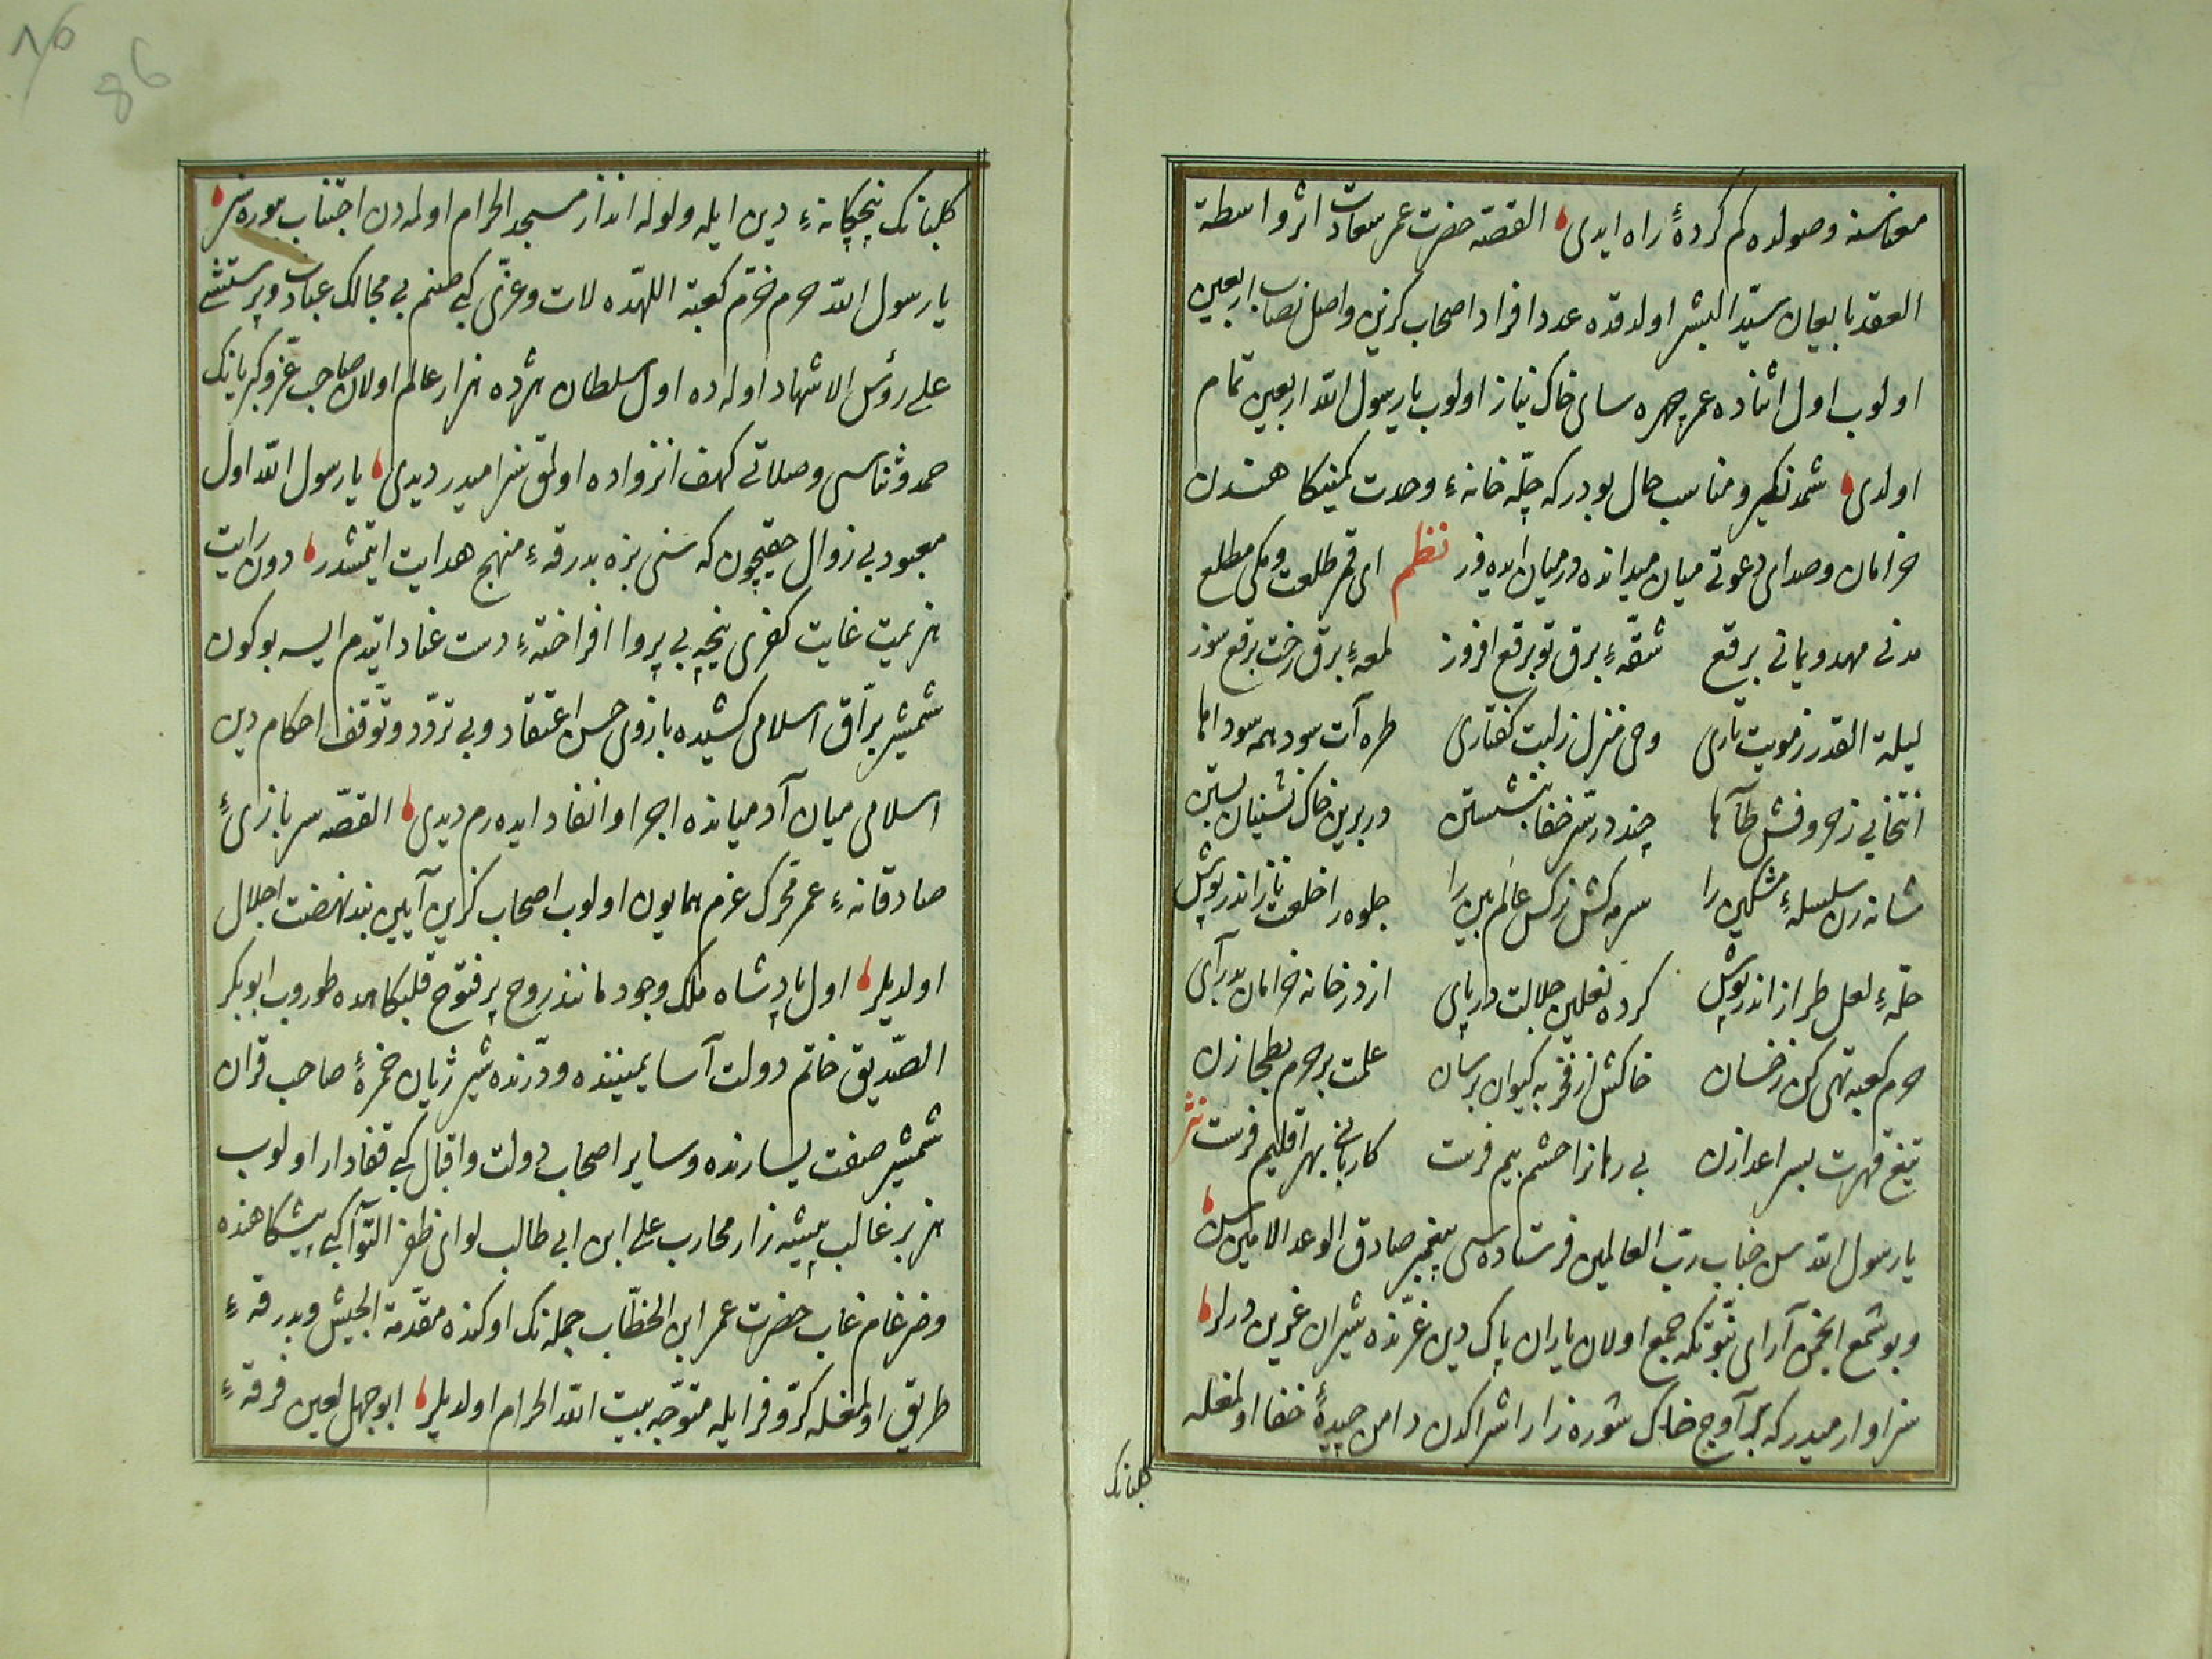 معناسنه وصولده كم كردهٔ راه ايدى القصه حضرت عمر سعادت اثر واسطة
العقد تابعان سيّد البشر اولدقده عدد افراد اصحاب كزين واصل نصاب اربعين
اولوب اول اثناده عمر چهره ساى خاك نياز اولوب يا رسول الله اربعين تمام
اولدى شمدنكيرو مناسب حال بودر كه چلّه خانهٔ وحدت كمينكاهندن
خرامان وصداى دعوتى ميان ميدانده درميان ايده ير نظم اى قمر طلعت ومكى مطلع
مدنى مهد ويمانى برقع شقّهٔ برق تو برقع افروز لمعهٔ برق رخت برقع سوز
ليلة القدر ز مويت تارى وحى منزل ز لبت كفتارى طره آت سود همه سوداها
انتخابى ز حروفش طاها چند در ستر خفا بنشستن در برين خاك نشينان بستن
شانه زن سلسلهٔ مشكين را سرمه كش نركس عالم بين را جلوه را خلعت ناز اندر پوش
حلهٔ لعل طراز اندر پوش كرده نعلين جلالت در پاى از در خانه خرامان بدر آى
حرم كعبه تهى كن ز خسان خاكش از فخر به كيوان برسان علمت بر حرم بطحا زن
تيغ قهرت بسر اعدا زن بى رمانرا حشم بيم فرست كاروانى بهر اقليم فرست نثر
يا رسول الله سن جناب ربّ العالمين فرستاده سى پيغمبر صادق الوعد الامين سن
وبو شمع انجمن آراى نبّوتكه جمع اولان ياران پاك دين غرّنده شيران عرين درلر
سزاوارميدر كه بر آوج خاك شوره زار اشراكدن دامن چيدهٔ خفا اولمغله
كلبانك
كلبانك پنجكانهٔ دين ايله ولوله انداز مسجد الحرام اولمه دن اجتناب بيوره سز
يا رسول الله حرم محرّم كعبة اللهده لات وعزّى كبى صنم بى مجالك عبادت وپرستشى
على رؤس الاشهاد اوله ده اول سلطان هژده هزار عالم اولان صاحب عزّ وكبريانك
حمد وثناسى وصلاتى كهف انزواده اولمق سزاميدر ديدى يا رسول الله اول
معبود بى زوال حقيچون كه سنى بزه بدرقهٔ منهج هدايت ايتمشدر دون رايت
هزيمت غايت كفرى نيچه بى پروا افراختهٔ دست عناد ايتدم ايسه بو كون
شمشير برّاق اسلامى كشيده بازوى حسن اعتقاد وبى تردّد وتوّقف احكام دين
اسلامى ميان آدميانده اجرا وانفاد ايده رم ديدى القصّه سربازىٔ
صادقانهٔ عمر محرك عزم همايون اولوب اصحاب كزين آيين بند نهضت اجلال
اولديلر اول پادشاه ملك وجود مانند روح پر فتوح قلبكاهده طوروب ابو بكر
الصّديق خاتم دولت آسا يميننده ودرّنده شير ژيان حمزهٔ صاحب قران
شمشير صفت يسارنده وساير اصحاب دولت واقبال كبى قفادار اولوب
هزبر غالب بيشه زار محارب على ابن ابى طالب لواى ظفر التوآ كبى پيشكاهنده
وضرغام غاب حضرت عمر ابن الخطّاب جمله نك اوكنده مقدّمة الجيش وبدرقهٔ
طريق اولمغله كرّ وفر ايله متوّجه بيت الله الحرام اولديلر ابو جهل لعين فرقهٔ